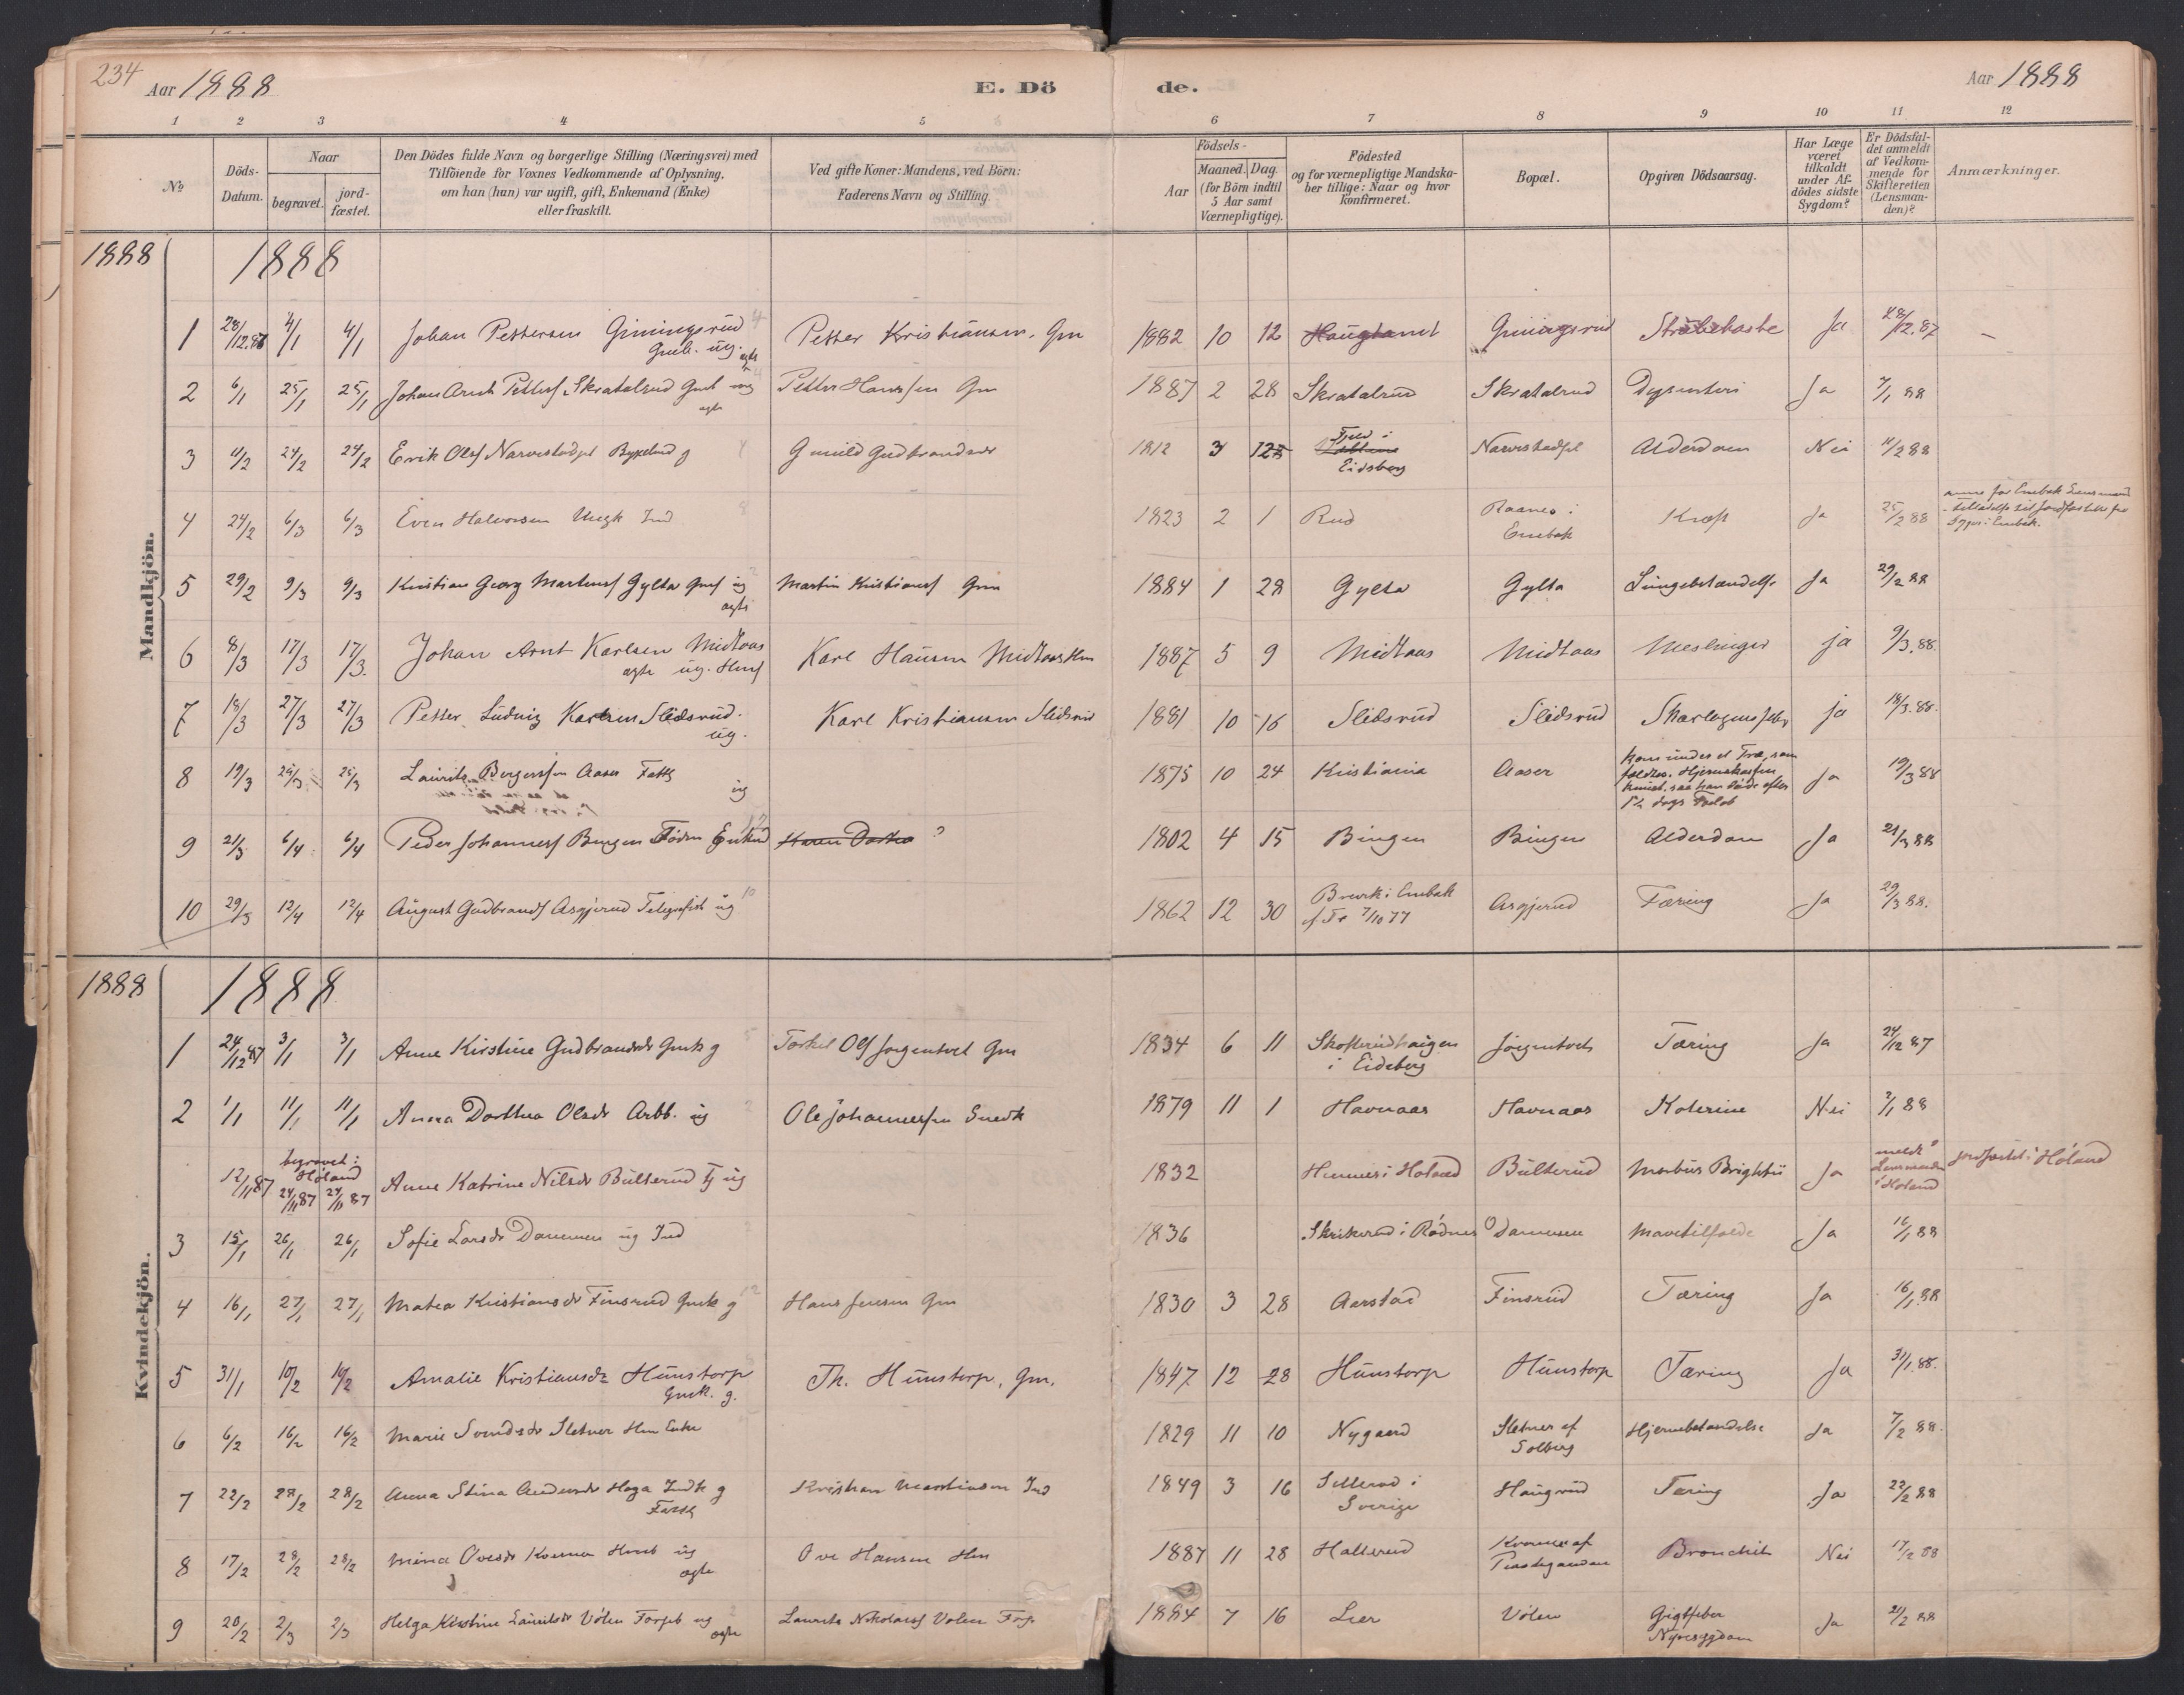 234
Aar 1888
E. Dö
de.
Aar 1888
1 2 3 4 5 6 7 8 9 10 11 12
No
Döds-Datum.
Naar
begravet.
jord-fæstet.
Den Dödes fulde Navn og borgerlige Stilling (Næringsvei) med
Tilföiende for Voxnes Vedkommende af Oplysning,
om han (hun) var ugift, gift, Enkemand (Enke)
eller fraskilt.
Ved gifte Koner: Mandens, ved Börn:
Faderens Navn og Stilling.
Födsels-
Aar
Maaned. Dag.
(for Börn indtil
5 Aar samt
Værnepligtige).
Födested
og for værnepligtige Mandska-
ber tillige: Naar og hvor
konfirmeret.
Bopæl.
Opgiven Dödsaarsag.
Har Læge
været
tilkaldt
under Af-
dödes sidste
Sygdom?
Er Dödsfal-
det anmeldt
af Vedkom-
mende for
Skifteretten
(Lensman-
den)?
Anmærkninger.
1888
1888
Mandkjön.
1 28/12.87 4/1 4/1 Johan Pettersen Giningsrud Petter Kristiansen. Gm 1882 10 12 Haugtomt Giningsrud Strubehoste Ja 28/12.87 —
Gmb. ug. ægte
2 6/1 25/1 25/1 Johan Arnt Petters Skratalrud Gmb ug Petter Hanssen Gm 1887 2 28 Skratalrud Skratalrud Dysenteri Ja 7/1 88
ægte
3 11/2 24/2 24/2 Erik Ols Narvestadpl g Gunild Gudbrandsdr 1812 3 Fjeld i Narvestadpl Alderdom Nei 11/2 88
Eidsberg
4 24/2 6/3 6/3 Even Halvorsen Ungk Ind 1823 2 1 Rud Raanes i Kræft Ja 25/2 88
Enebak
5 29/2 9/3 9/3 Kristian Georg Martins Gylta Gms ug Martin Kristians Gm 1884 1 28 Gylta Gylta Lungebetændelse Ja 29/2 88
ægte
6 8/3 17/3 17/3. Johan Arnt Karlsen Midtaas Karl Hansen Midtaas Hm 1887 5 9 Midtaas Midtaas Meslinger ja 9/3.88.
ægte ug. Hms
7 18/3 27/3 27/3 Petter Ludvig Karlsen Slidsrud. Karl Kristiansen Slidsrud 1881 10 16 Slidsrud Slidsrud Skarlagensfeber ja 18/3.88.
ug.
8 19/3 25/3 25/3 Laurits Bergersen Aaser Fattg 1875 10 24 Kristiania Aaser Kom under et Træ, som Ja 19/3 88
ug
faldt. Hjerneskallen
knust, saa han döde efter
1½ dags Forløb
9 21/3 6/4 6/4 Peder Johanness Bingen Föderm Enkem Karen Dortea ? 1802 4 15 Bingen Bingen Alderdom Ja 21/3 88
10 29/3 12/4 12/4 August Gudbrands Asgjerud Telegrafist ug 1862 12 30 Asgjerud Tæring Ja 29/3 88.
i Enebak
7/10 77
1888
1888
Kvindekjön.
1 24/12 87 3/1 3/1 Anne Kirstine Gudbrandsdr Gmk g Torkel Ols Jørgentvet Gm 1834 6 11 Skofterudhaugen Jørgentvet Tæring Ja 24/12 87
i Eidsberg
2 1/1 11/1 11/1 Anna Dorthea Olsdr Arbb. ug Ole Johannessen Snedk 1879 11 1 Havnaas Havnaas Kolerine Nei 2/1 88
12/11 87 begravet i Høland 24/11 87 24/11 87 Anne Katrine Nilsdr Bulterud Tj ug 1832 i Høland Bulterud Morbus Brightii Ja meldt Lensmanden i Høland jordfæstet i Høland
3 15/1 26/1 26/1 Sofie Larsdr Dammen ug Ind 1836 Skrikerud i Rødnes Dammen Mavetilfælde Ja 16/1 88
4 16/1 27/1 27/1 Matea Kristiansdr Finsrud Gmk g Hans Jensen Gm 1830 3 28 Aarstad Finsrud Tæring Ja 16/1.88
5 31/1 10/2 10/2 Amalie Kristiansdr Hunstorp Th. Hunstorp, Gm. 1847 12 28 Hunstorp Hunstorp Tæring Ja 31/1.88.
Gmk. g.
6 6/2 16/2 16/2 Marie Svendsdr Sletner Hm Enke 1829 11 10 Nygaard Sletner af Hjernebetændelse Ja 7/2 88.
Solberg
7 22/2 28/2 28/2 Anna Stina Andersdr Haga Indk g Kristian Martinsen Ind 1849 3 16 Sillerud i Haugrud Tæring Ja 22/2 88
Fattg Sverige
8 17/2 28/2 28/2 Mina Ovesdr Hmb ug Ove Hansen Hm 1887 11 28 Hallerud Bronchit Nei 17/2 88
ægte
9 20/2 2/3 2/3 Helga Kirstine Lauritsdr Volen Forpb ug Laurits Nikolais Volen Forp 1884 7 16 Lier Volen Gigtfeber Ja 21/2 88
ægte Nyresygdom